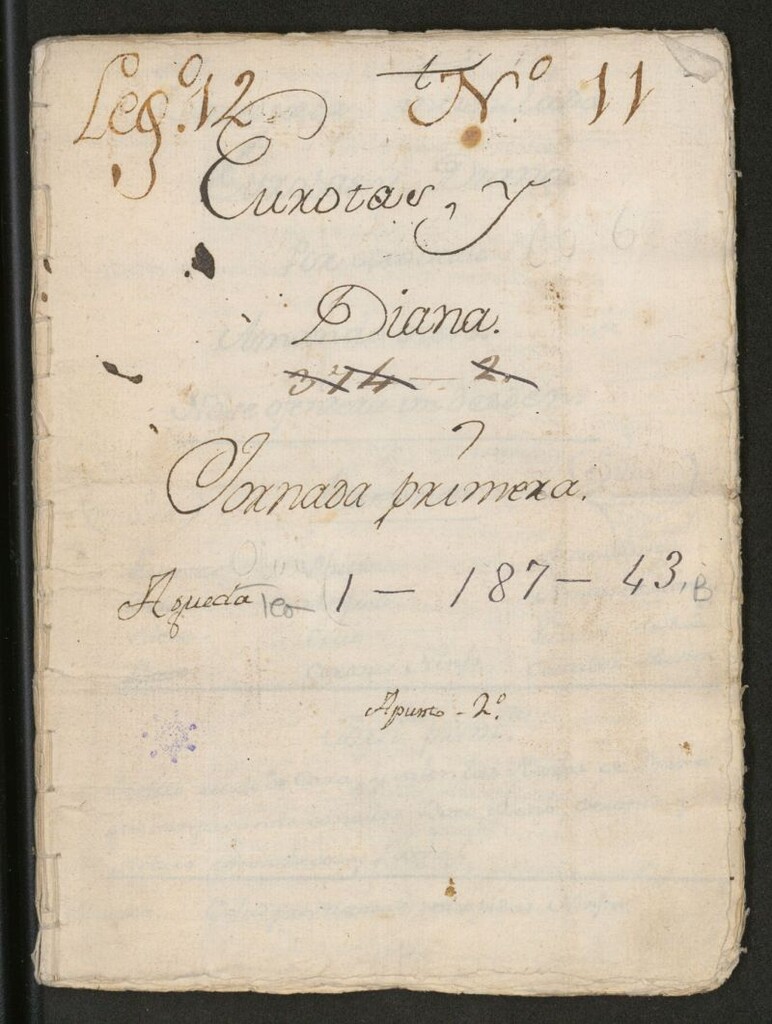 Leg.º 12 t Nº 11
Eurotas, y
Diana.
374 - 2.
Jornada primera.
Agueda leo 1 - 187 - 43, B
Apunto - 2º